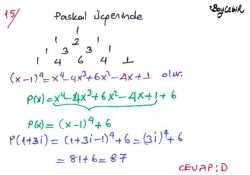 15/ Paskal Üçgeninde
1
1 2 1
1 3 3 1
1 4 6 4 1
(x-1)⁴ = x⁴-4x³+6x²-4x+1 olur.
P(x) = x⁴-4x³+6x²-4x+1+6
P(x) = (x-1)⁴+6
P(1+3i) = (1+3i-1)⁴+6 = (3i)⁴+6
= 81+6 = 87
CEVAP: D